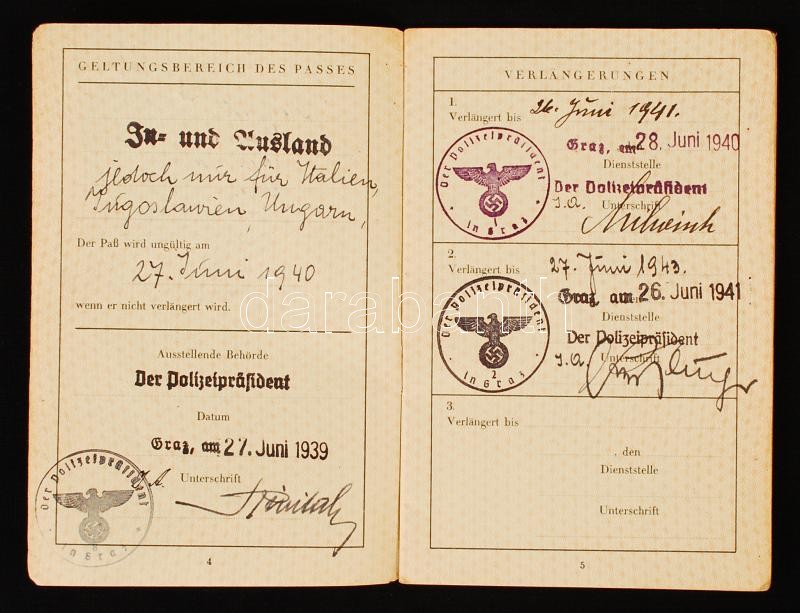 GELTUNGSBEREICH DES PASSES
In- und Ausland
jedoch nur für Italien,
Jugoslawien, Ungarn,
Der Paß wird ungültig am
27. Juni 1940
wenn er nicht verlängert wird.
Ausstellende Behörde
Der Polizeipräsident
Datum
Graz, am 27. Juni 1939
I.A. Unterschrift
Der Polizeipräsident
in Graz
8
4
VERLÄNGERUNGEN
1.
Verlängert bis 26. Juni 1941.
Graz, am 28. Juni 1940
Dienststelle
Der Polizeipräsident
I.A. Unterschrift
Der Polizeipräsident
1
in Graz
2.
Verlängert bis 27. Juni 1943.
Graz, am 26. Juni 1941
Dienststelle
Der Polizeipräsident
I.A. Unterschrift
Der Polizeipräsident
2
in Graz
3.
Verlängert bis
, den
Dienststelle
Unterschrift
5
darabanth